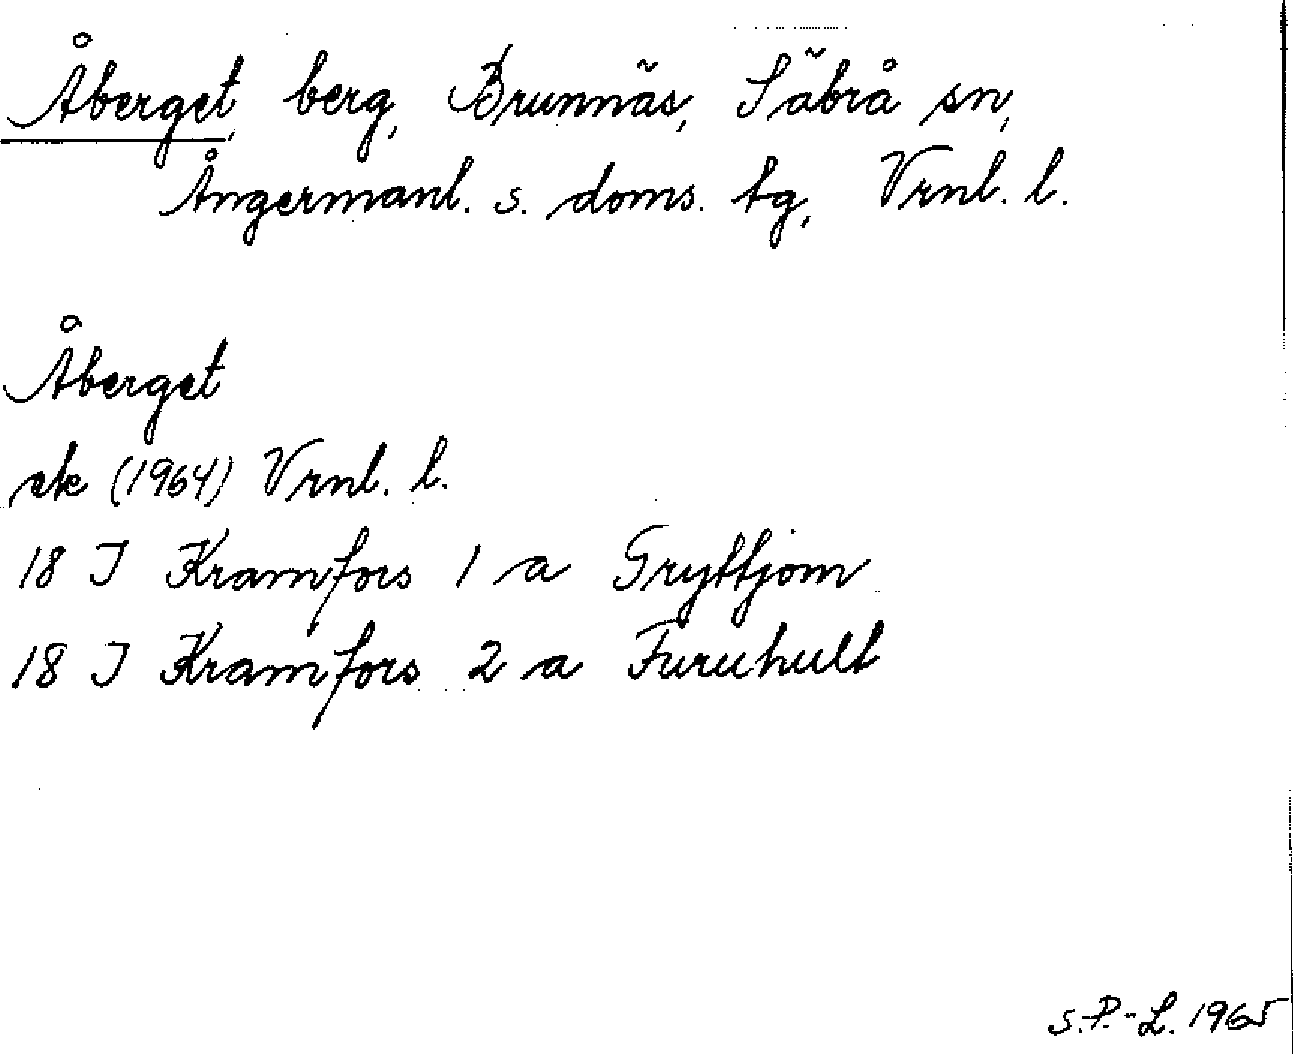 Åberget, berg, Brunnäs, Säbrå sn,
Ångermanl. s. doms. tg, Vrnl. l.
Åberget
ek (1964) Vrnl. l.
18 I Kramfors 1 a Gryttjom
18 I Kramfors 2 a Furuhult
S.P.-L. 1965